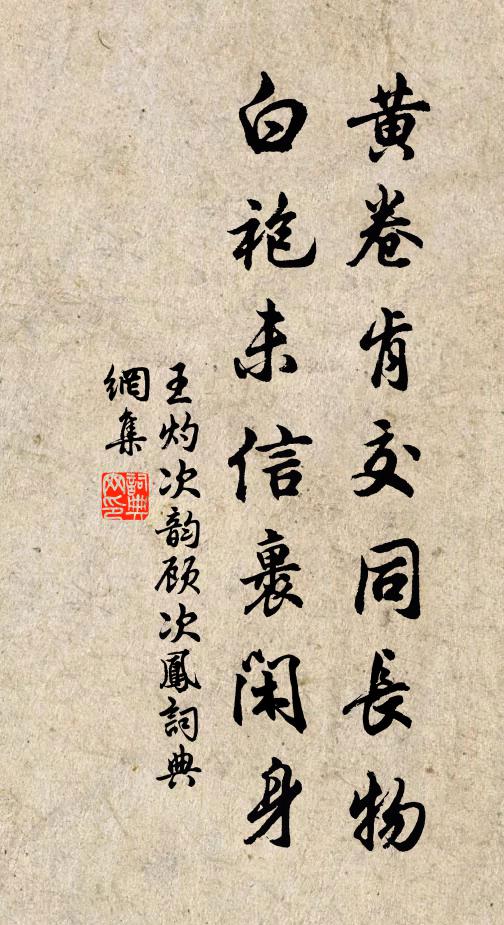 黄卷肯交同長物
白袍未信裹閑身
王灼次韵顾次鳳詞典
網集
詞典
网印